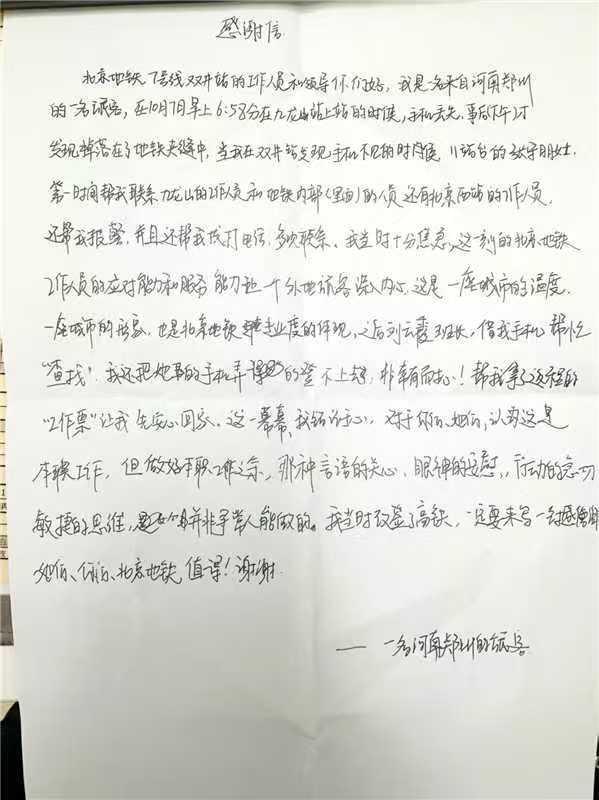 感谢信
北京地铁7号线双井站的工作人员和领导你们好,我是一名来自河南郑州
的一名旅客,在10月7日早上6:58分在九龙山站上站的时候,手机丢失,事后下午
发现掉落在了地铁夹缝中,当我在双井站发现手机不见的时候,站台的
第一时间帮我联系九龙山的工作人员和地铁内部(里面)的人员还有北京西站的工作人员.
还帮我报警,并且还帮我拨打电话,多次联系、我当时十分焦急,这一刻的北京地铁
工作人员的应对能力和服务能力让一个外地旅客深入内心,这是一座城市的温度.
一座城市的形象,也是北京地铁专业度的体现,之后刘云霞班长,借我手机帮忙
“查找”.我还把她的手机弄的登不上去,非常有耐心!帮我拿了返程的
“工作票”让我先安心回家.这一幕幕,我铭记于心,对于你们、她们,认为这是
本职工作,但做好本职工作之余,那种言语的关心、眼神的安慰,行动的急切
敏捷的思维,并非寻常人能做的。我当时改签了高铁,一定要来写一封感谢信
她们、你们、北京地铁值得!谢谢.
—— 一名河南郑州的旅客